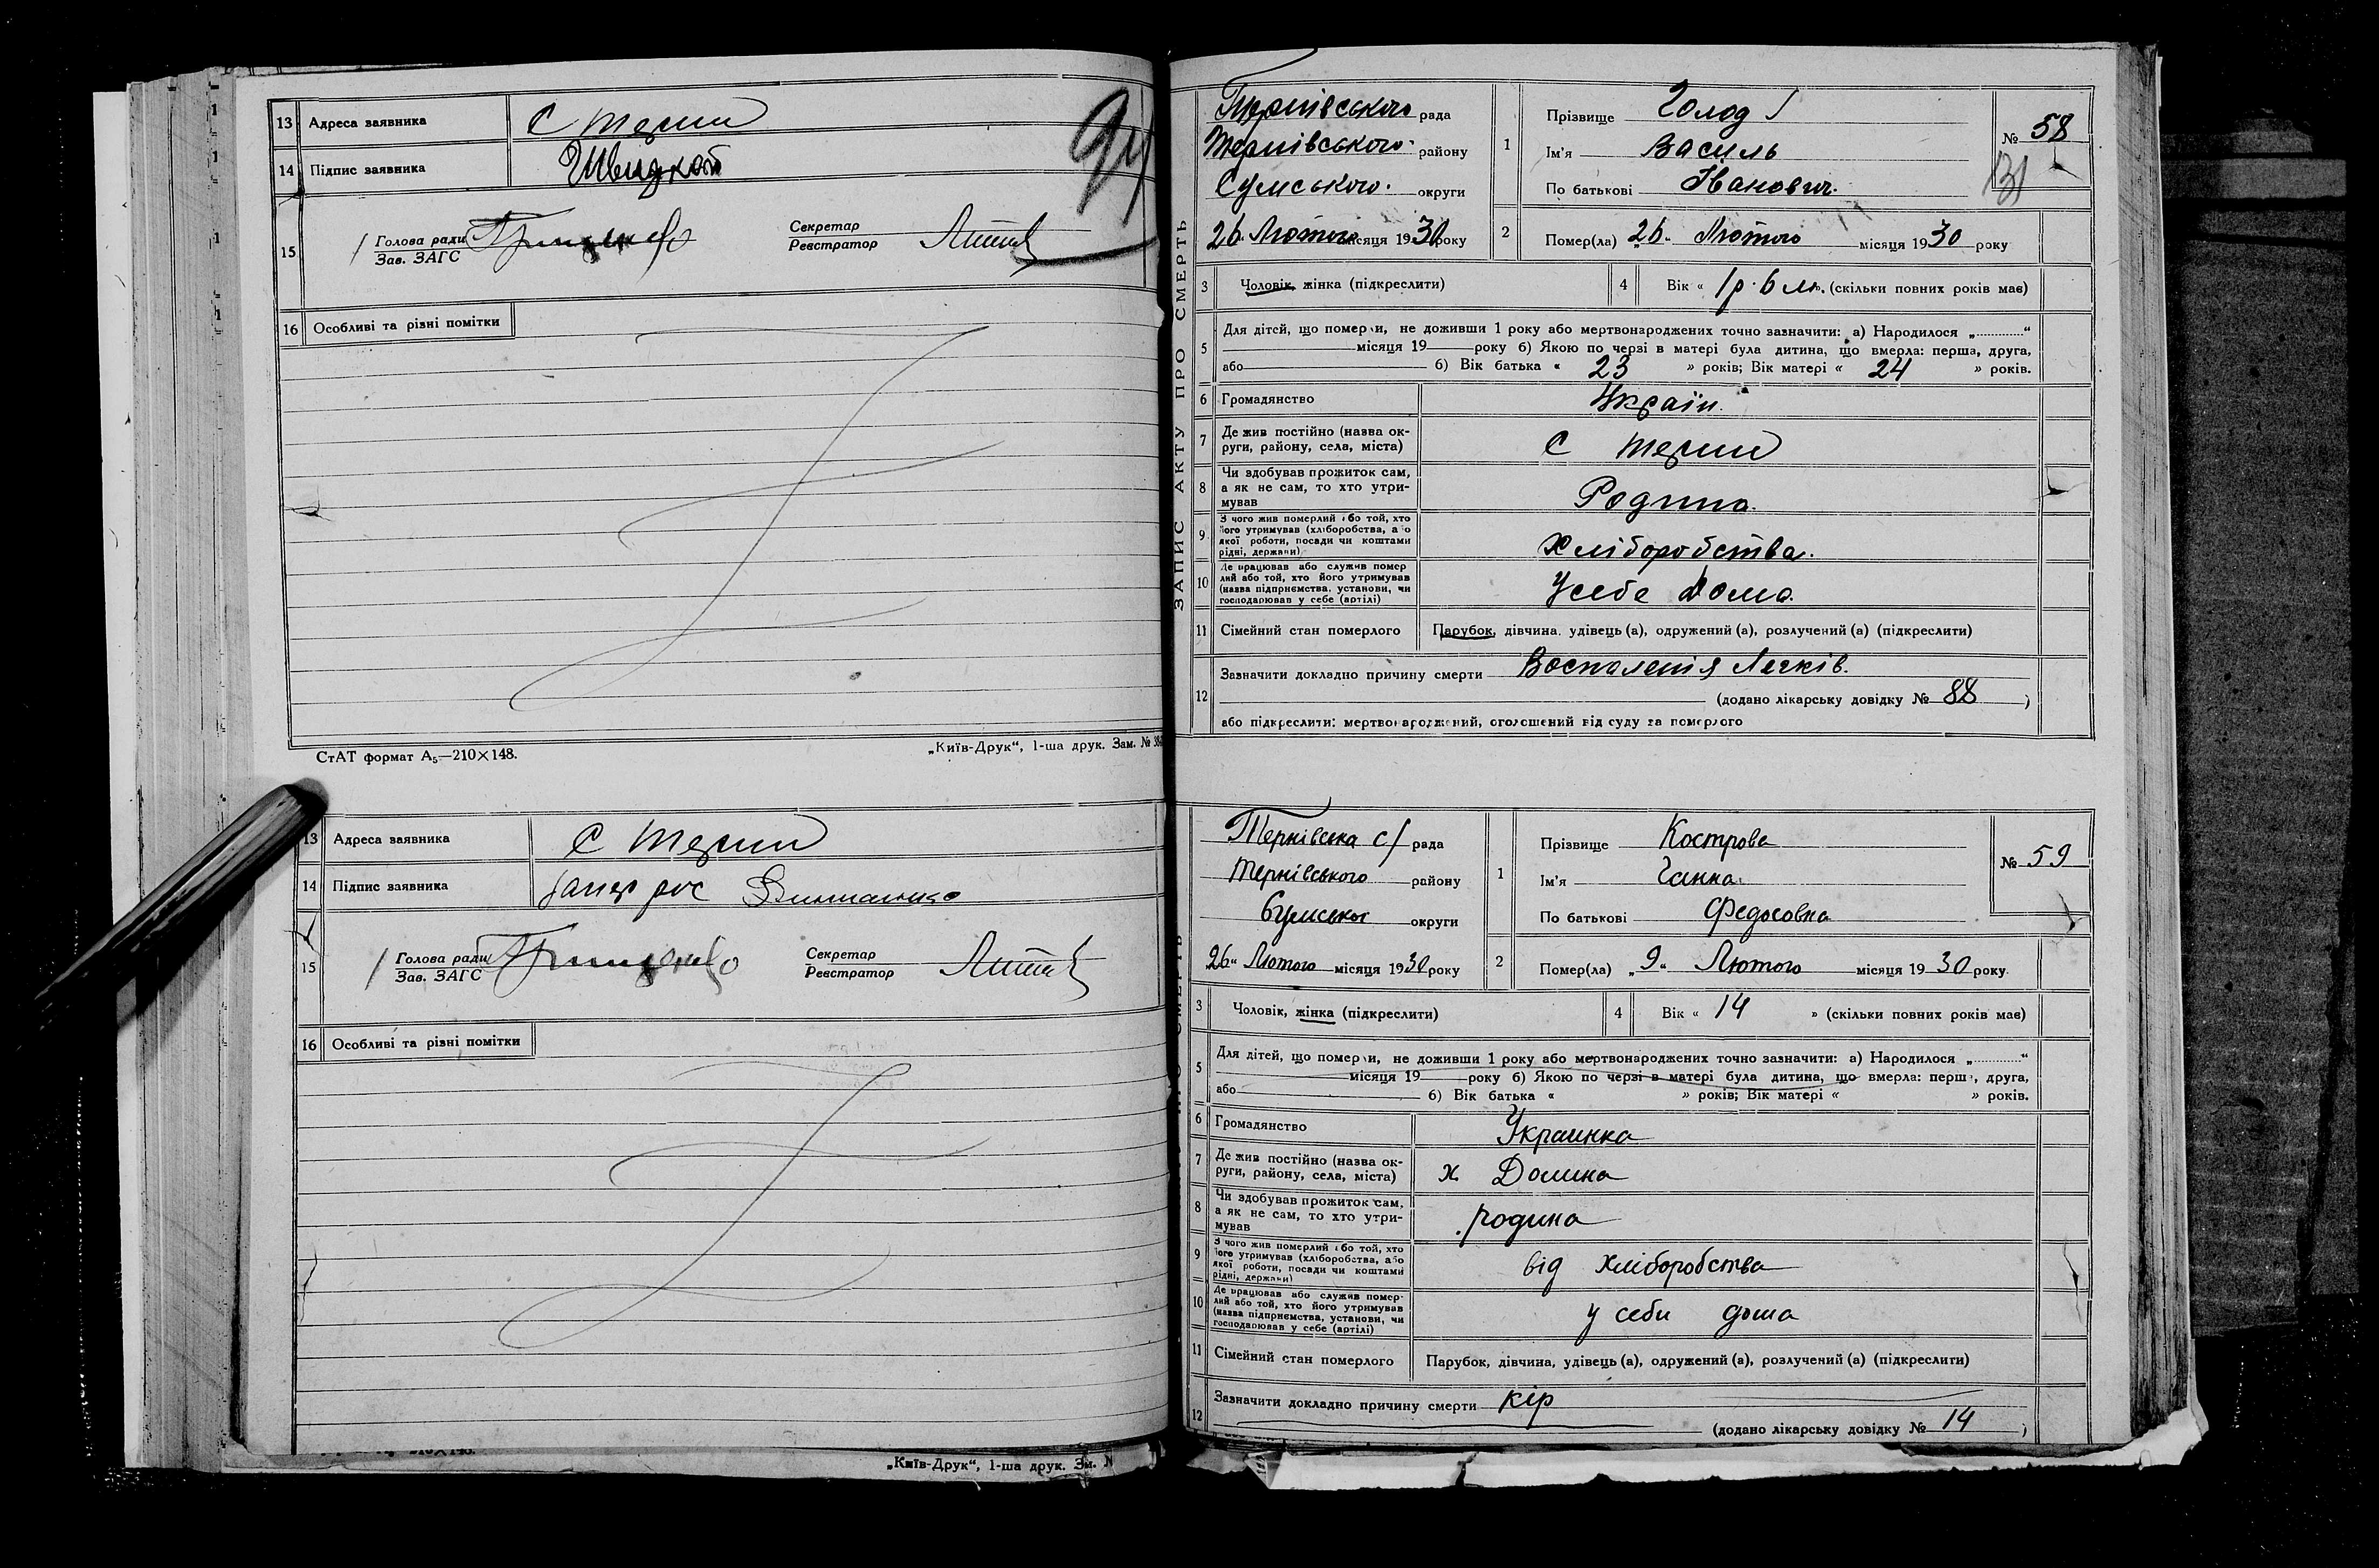 13 Адреса заявника С терни
14 Підпис заявника Швидкой
94
15 Голова ради
Зав. ЗАГС
Секретар
Реєстратор
16 Особливі та різні помітки
СтАТ формат А₅—210×148.
„Київ-Друк“, 1-ша друк. Зам. №
13 Адреса заявника С терни
14 Підпис заявника
15 Голова ради
Зав. ЗАГС
Секретар
Реєстратор
16 Особливі та різні помітки
„Київ-Друк“, 1-ша друк. Зм. N
ЗАПИС АКТУ ПРО СМЕРТЬ
Тернівського рада
Тернівського району
Сумського округи
26 Лютого місяця 1930 року
1 Прізвище Голод
Ім'я Василь
По батькові Іванович.
№ 58
131
2 Помер(ла) „26„ Лютого місяця 1930 року
3 Чоловік, жінка (підкреслити)
4 Вік « 1 р. 6 м. (скільки повних років має)
5 Для дітей, що померли, не доживши 1 року або мертвонароджених точно зазначити: а) Народилося „............“
місяця 19 року б) Якою по черзі в матері була дитина, що вмерла: перша, друга,
або б) Вік батька « 23 » років; Вік матері « 24 » років.
6 Громадянство Україн.
7 Де жив постійно (назва округи, району, села, міста) С терни
8 Чи здобував прожиток сам, а як не сам, то хто утримував Родина.
9 З чого жив померлий або той, хто його утримував (хліборобства, або якої роботи, посади чи коштами рідні, держави) Хліборобства.
10 Де працював або служив померлий або той, хто його утримував (назва підприємства, установи, чи господарював у себе (артілі) У себе дома.
11 Сімейний стан померлого Парубок, дівчина, удівець (а), одружений (а), розлучений (а) (підкреслити)
12 Зазначити докладно причину смерти Воспаленія Легків.
(додано лікарську довідку № 88 )
або підкреслити: мертвонароджений, оголошений від суду за померлого
Тернівська с/ рада
Тернівського району
Сумської округи
26„ Лютого місяця 1930 року
1 Прізвище Кострова
Ім'я Ганна
По батькові Федосовна
№ 59
2 Помер(ла) „9„ Лютого місяця 1930 року.
3 Чоловік, жінка (підкреслити)
4 Вік « 14 » (скільки повних років має)
5 Для дітей, що померли, не доживши 1 року або мертвонароджених точно зазначити: а) Народилося „............“
місяця 19 року б) Якою по черзі в матері була дитина, що вмерла: перша, друга,
або б) Вік батька « » років; Вік матері « » років.
6 Громадянство Украинка
7 Де жив постійно (назва округи, району, села, міста) х Долина
8 Чи здобував прожиток сам, а як не сам, то хто утримував родина
9 З чого жив померлий або той, хто його утримував (хліборобства, або якої роботи, посади чи коштами рідні, держави) від хліборобства
10 Де працював або служив померлий або той, хто його утримував (назва підприємства, установи, чи господарював у себе (артілі) у себи дома
11 Сімейний стан померлого Парубок, дівчина, удівець (а), одружений (а), розлучений (а) (підкреслити)
12 Зазначити докладно причину смерти кір
(додано лікарську довідку № 14 )